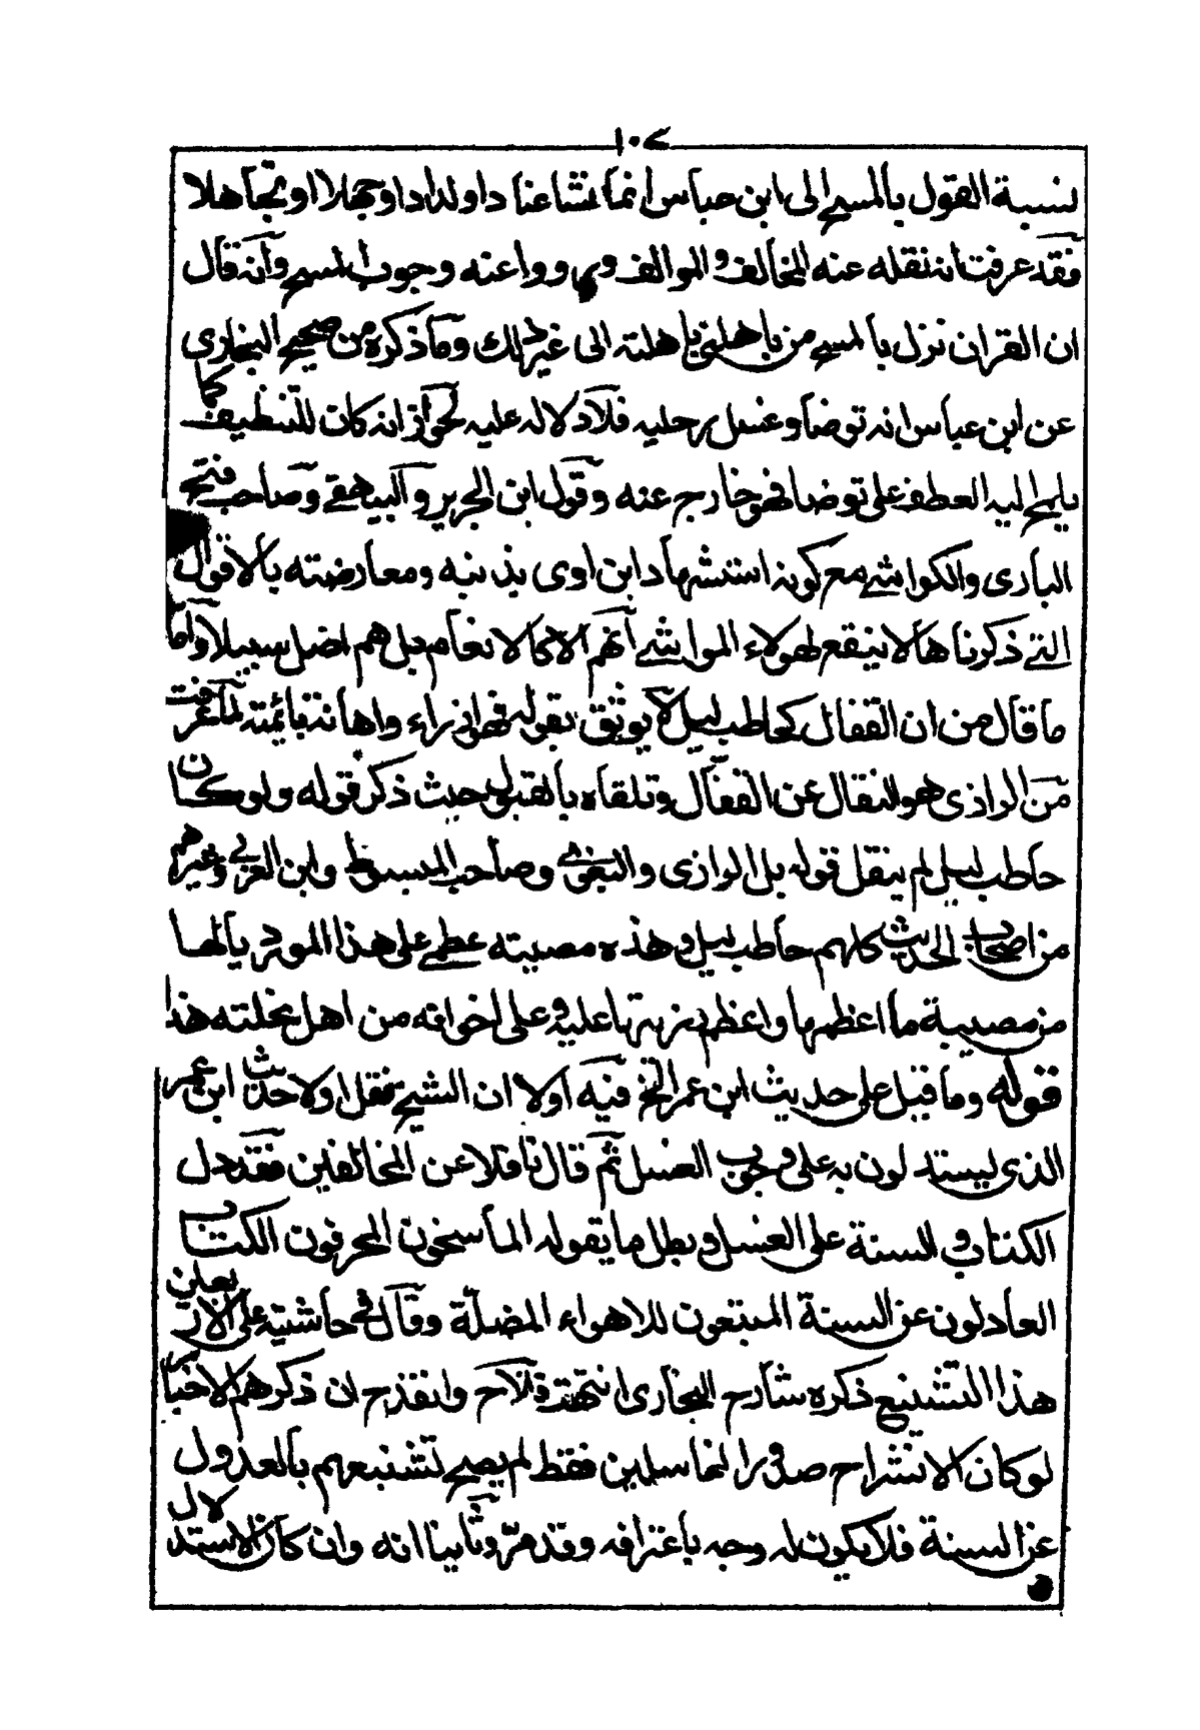 ١٠٧
نسبة القول بالمسح الى ابن عباس انما نشا عنادا ولدادا وجهلا او تجاهلا
فقد عرفت انه نقله عنه المخالف والموالف ورووا عنه وجوب المسح وانه قال
ان القران نزل بالمسح من باهلنى باهلته الى غير ذلك وما ذكره من صحيح البخارى
عن ابن عباس انه توضا وغسل رجليه فلا دلاله عليه لجواز انه كان للتنظيف كما
يلمح اليه العطف على توضا فهو خارج عنه وقول ابن الجرير والبيهقى وصاحب فتح
البارى والكواشى مع كونه استشهاد ابن اوى بذنبه ومعارضته بالاقوال
التى ذكرناها لا ينفع لهولاء المواشى انهم الا كالانعام بل هم اضل سبيلا واما
ما قال من ان القفال كحاطب ليل لا يوثق بقوله فهو ازراء واهانة بائمته لما عرفت
من الرازى هو النقال عن القفال وتلقاه بالقبول حيث ذكر قوله ولو كان
حاطب ليل لم ينقل قوله بل الرازى والبغوى وصاحب المبسوط وابن العربى وغيرهم
من اصحاب الحديث كلهم حاطب ليل وهذه مصيبته عظمى على هذا المورد يا لها
من مصيبة ما اعظمها واعظم رزيتها عليه وعلى اخوانه من اهل نحلته هذا
قوله وما قيل على حديث ابن عمر الخ فيه اولا ان الشيخ نقل اولا حديث ابن عمر
الذى يستدلون به على وجوب الغسل ثم قال ناقلا عن المخالفين فقد دل
الكتاب والسنة على الغسل وبطل ما يقوله الماسخون المحرفون الكتاب
العادلون عن السنة المبتعون للاهواء المضلة وقال فى حاشيته على الار بعلن
هذا التشنيع ذكره شارح البخارى انتهت فلاح وانقدح ان ذكرهم الاخبار
لو كان لانشراح صدور الغاسلين فقط لم يصح تشنيعهم بالعدول
عن السنة فلا يكون له وجه باعترافه وقد مر وثانيا انه وان كان الاستدلال